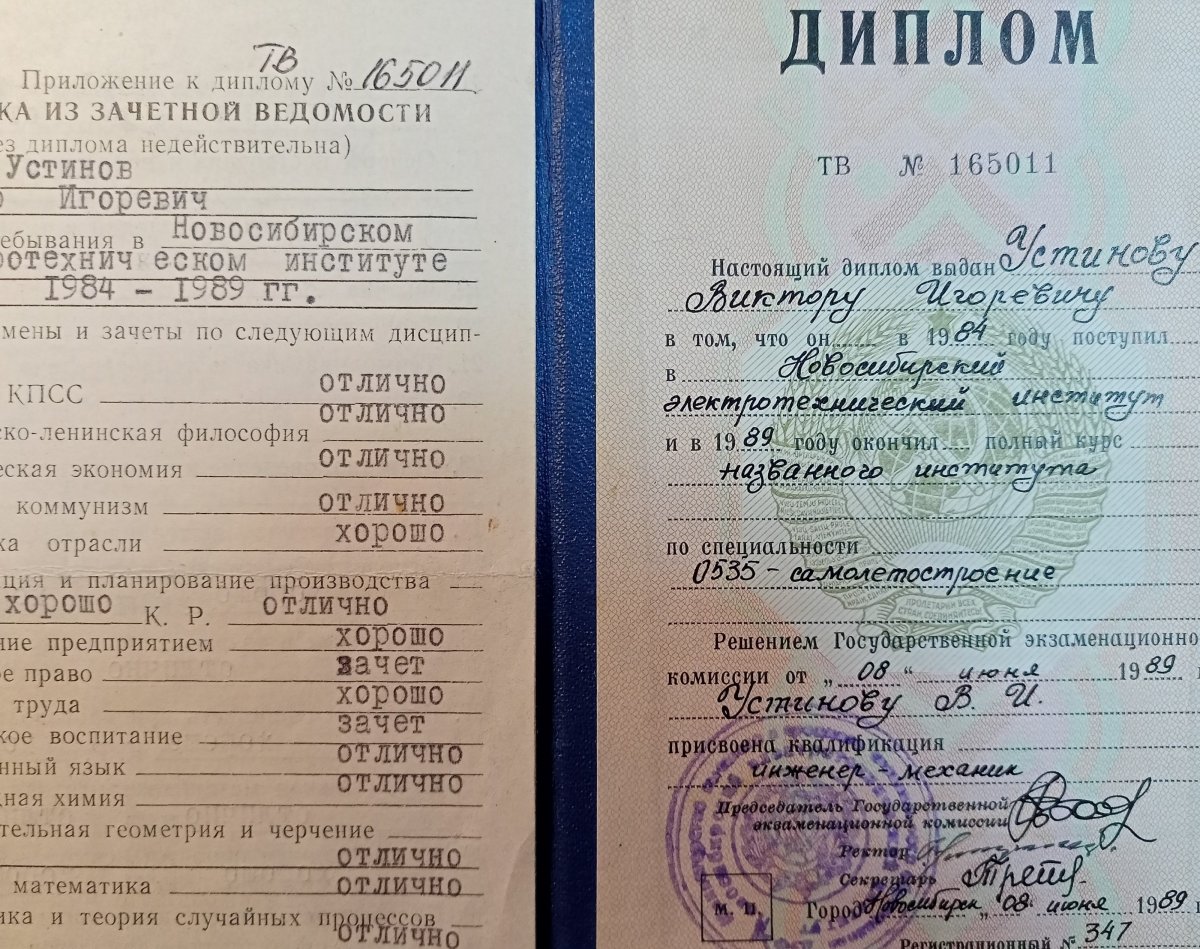 ТВ
Приложение к диплому № 165011
КА ИЗ ЗАЧЕТНОЙ ВЕДОМОСТИ
ез диплома недействительна)
Устинов
р Игоревич
ебывания в Новосибирском
ротехнич еском институте
1984 - 1989 гг.
мены и зачеты по следующим дисцип-
КПСС отлично
ско-ленинская философия отлично
еская экономия отлично
коммунизм отлично
ка отрасли хорошо
ция и планирование производства
хорошо К. Р. отлично
ние предприятием хорошо
е право зачет
труда хорошо
кое воспитание зачет
нный язык отлично
дная химия отлично
тельная геометрия и черчение
отлично
математика отлично
ика и теория случайных процессов
отлично
ДИПЛОМ
ТВ № 165011
Настоящий диплом выдан Устинову
Виктору Игоревичу
в том, что он в 1984 году поступил
в Новосибирский
электротехнический институт
и в 1989 году окончил полный курс
названного института
по специальности
0535 - самолетостроение
Решением Государственной экзаменационно
комиссии от „08“ июня 1989 г
Устинову В. И.
присвоена квалификация
инженер - механик
Председатель Государственной
экзаменационной комиссии
Ректор
Секретарь
М. П.
Город Новосибирск „08 июня 1989 г
Регистрационный № 347